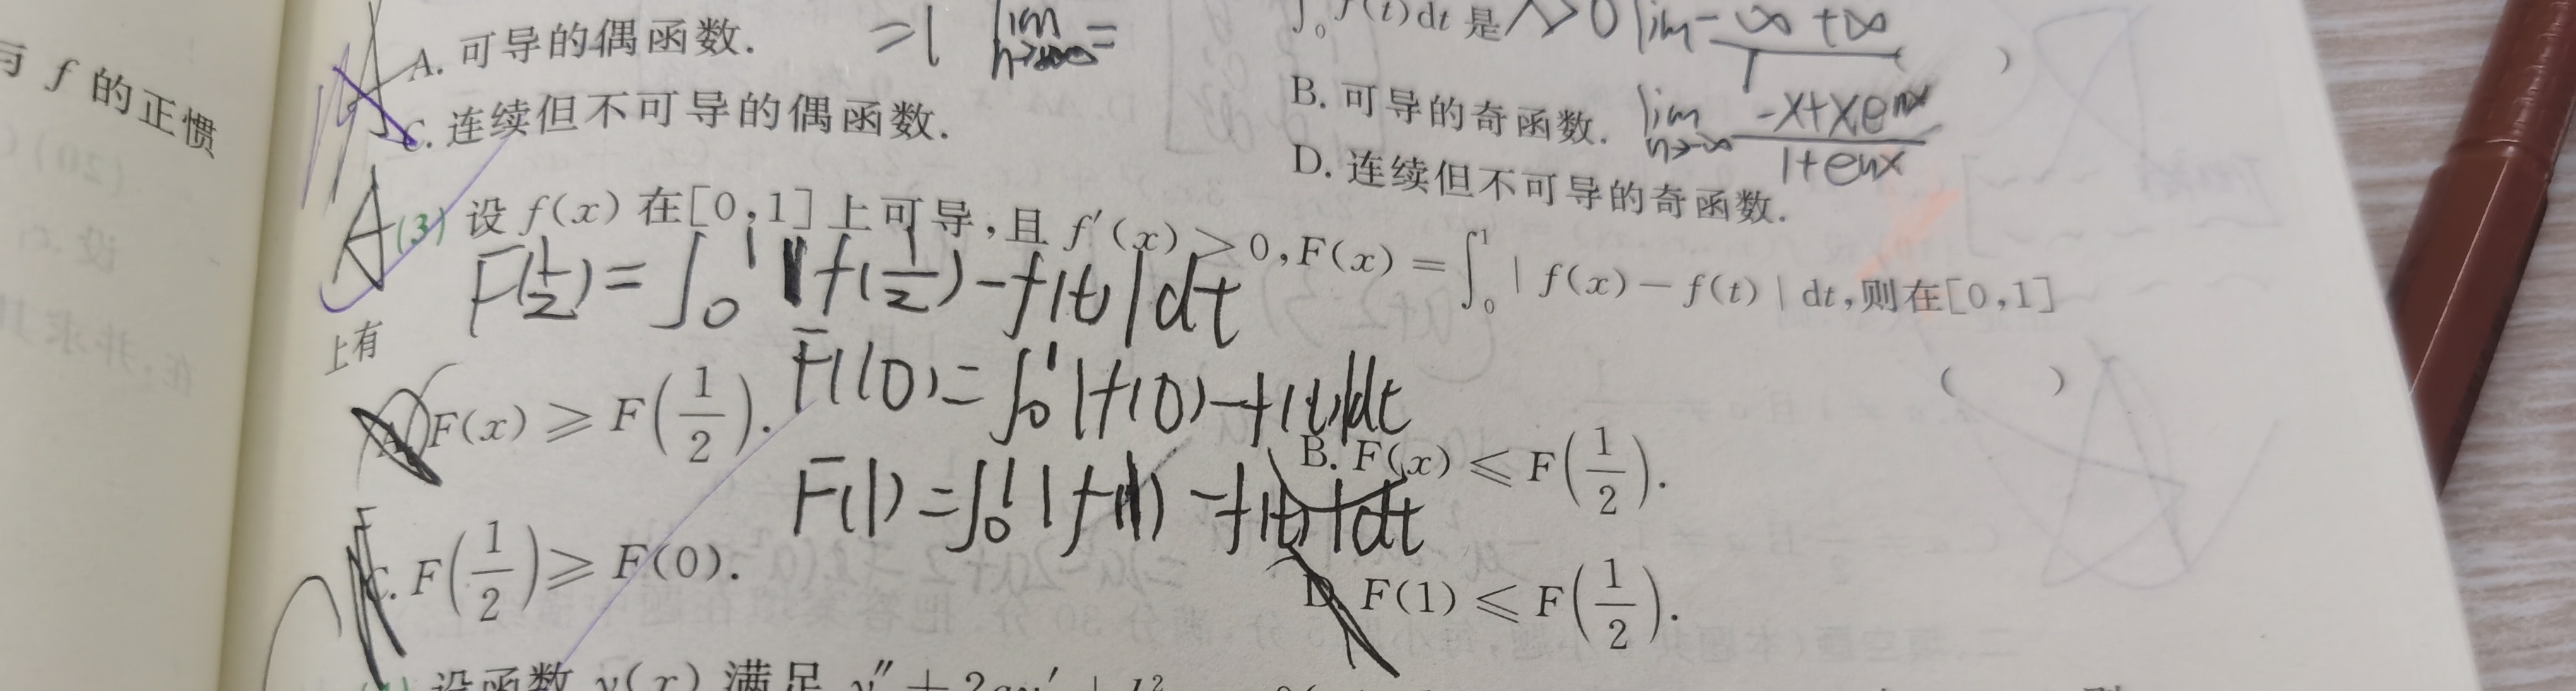 与 f 的正惯
∫₀ f(t)dt 是 λ>0 lim -∞ +∞
)
A. 可导的偶函数. =1 lim n→∞ =
B. 可导的奇函数. lim n→-∞ (-x+xe^{nx})/(1+e^{nx})
C. 连续但不可导的偶函数.
D. 连续但不可导的奇函数.
A (3) 设 f(x) 在[0,1]上可导,且 f′(x)>0,F(x)=∫₀¹|f(x)-f(t)|dt,则在[0,1]
F(1/2)=∫₀¹|f(1/2)-f(t)|dt
上有 ( )
F(0)=∫₀¹|f(0)-f(t)|dt
A. F(x)≥F(1/2).
B. F(x)≤F(1/2).
F(1)=∫₀¹|f(1)-f(t)|dt
C. F(1/2)≥F(0).
D. F(1)≤F(1/2).
设函数 y(x) 满足 y″+2ay′+